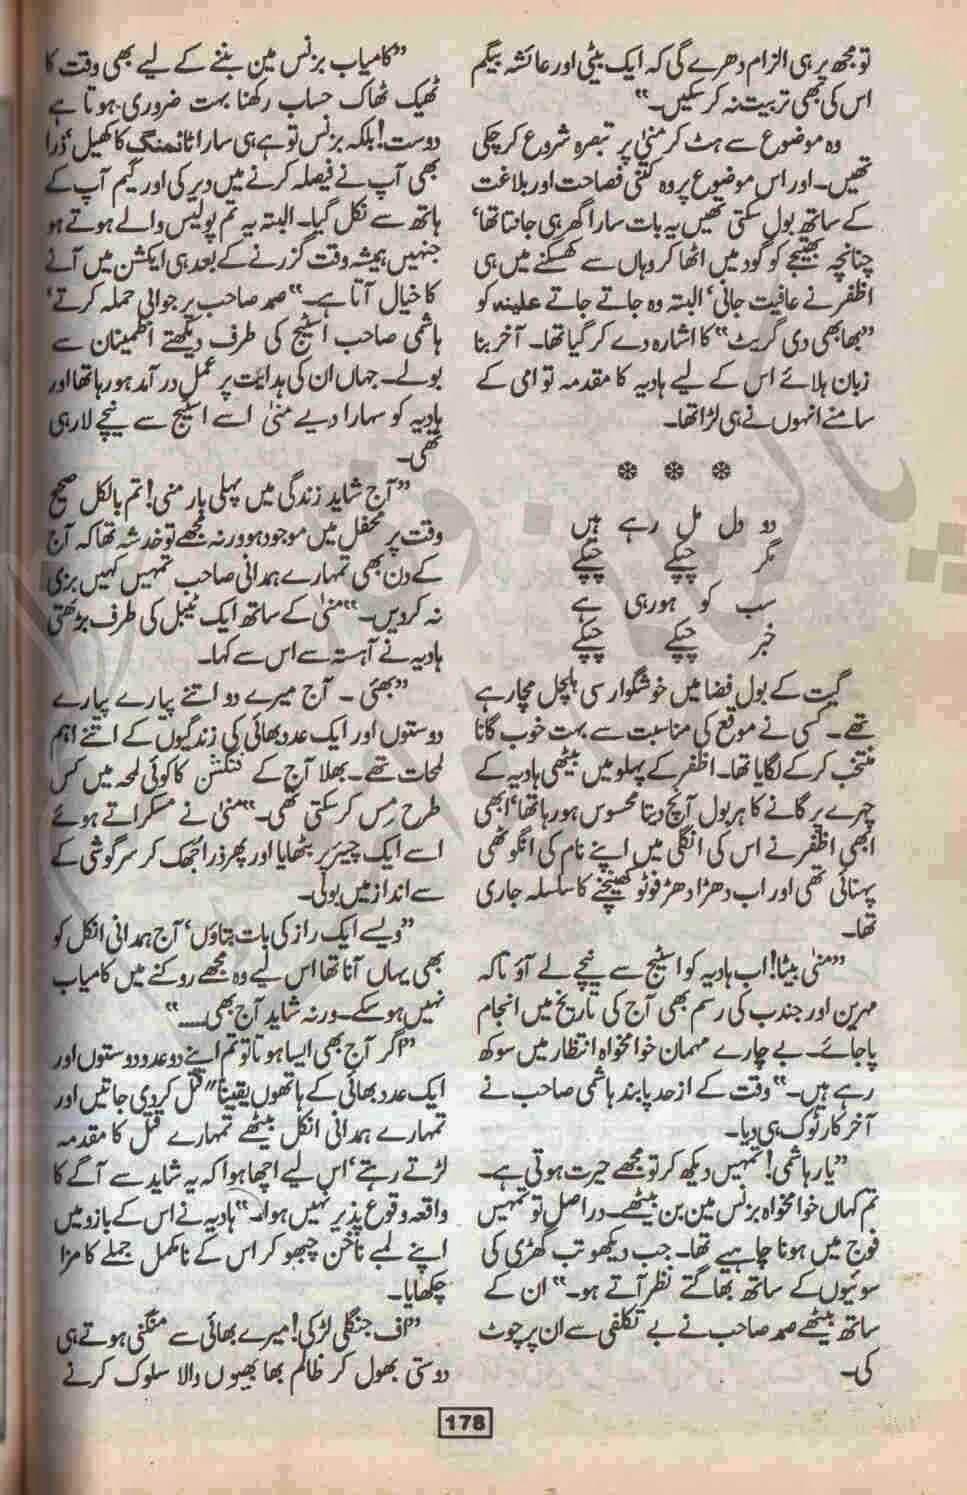 تو مجھ پر ہی الزام دھرے گی کہ ایک بیٹی اور عائشہ بیگم
اس کی بھی تربیت نہ کر سکیں۔"
وہ موضوع سے ہٹ کر منیٰ پر تبصرہ شروع کر چکی
تھیں۔ اور اس موضوع پر وہ کتنی فصاحت اور بلاغت
کے ساتھ بول سکتی تھیں یہ بات سارا گھر ہی جانتا تھا'
چنانچہ بھتیجے کو گود میں اٹھا کر وہاں سے کھسکنے میں ہی
اظفر نے عافیت جانی' البتہ وہ جاتے جاتے علینہ کو
"بھابھی دی گریٹ" کا اشارہ دے کر گیا تھا۔ آخر بنا
زبان ہلائے اس کے لیے ہادیہ کا مقدمہ تو امی کے
سامنے انہوں نے ہی لڑا تھا۔
* * *
دو دل مل رہے ہیں
مگر چپکے چپکے
سب کو ہو رہی ہے
خبر چپکے چپکے
گیت کے بول فضا میں خوشگوار سی ہلچل مچا رہے
تھے۔ کسی نے موقع کی مناسبت سے بہت خوب گانا
منتخب کر کے لگایا تھا۔ اظفر کے پہلو میں بیٹھی ہادیہ کے
چہرے پر گانے کا ہر بول آنچ دیتا محسوس ہو رہا تھا' ابھی
ابھی اظفر نے اس کی انگلی میں اپنے نام کی انگوٹھی
پہنائی تھی اور اب دھڑا دھڑ فوٹو کھینچنے کا سلسلہ جاری
تھا۔
"منیٰ بیٹا! اب ہادیہ کو اسٹیج سے نیچے لے آؤ تاکہ
مہرین اور جندب کی رسم بھی آج کی تاریخ میں انجام
پا جائے۔ بے چارے مہمان خوامخواہ انتظار میں سوکھ
رہے ہیں۔" وقت کے ازحد پابند ہاشمی صاحب نے
آخر کار ٹوک ہی دیا۔
"یار ہاشمی! تمہیں دیکھ کر تو مجھے حیرت ہوتی ہے۔
تم کہاں خوامخواہ بزنس مین بن بیٹھے۔ دراصل تو تمہیں
فوج میں ہونا چاہیے تھا۔ جب دیکھو تب گھڑی کی
سوئیوں کے ساتھ بھاگتے نظر آتے ہو۔" ان کے
ساتھ بیٹھے صمد صاحب نے بے تکلفی سے ان پر چوٹ
کی۔
"کامیاب بزنس مین بننے کے لیے بھی وقت کا
ٹھیک ٹھاک حساب رکھنا بہت ضروری ہوتا ہے
دوست! بلکہ بزنس تو ہے ہی سارا ٹائمنگ کا کھیل' ذرا
بھی آپ نے فیصلہ کرنے میں دیر کی اور گیم آپ کے
ہاتھ سے نکل گیا۔ البتہ یہ تم پولیس والے ہوتے ہو
جنہیں ہمیشہ وقت گزرنے کے بعد ہی ایکشن میں آنے
کا خیال آتا ہے۔" صمد صاحب پر جوابی حملہ کرتے'
ہاشمی صاحب اسٹیج کی طرف دیکھتے اطمینان سے
بولے۔ جہاں ان کی ہدایت پر عمل در آمد ہو رہا تھا اور
ہادیہ کو سہارا دیے منیٰ اسے اسٹیج سے نیچے لا رہی
تھی۔
"آج شاید زندگی میں پہلی بار منی! تم بالکل صحیح
وقت پر محفل میں موجود ہو ورنہ مجھے تو خدشہ تھا کہ آج
کے دن بھی تمہارے ہمدانی صاحب تمہیں کہیں بزی
نہ کر دیں۔" منیٰ کے ساتھ ایک ٹیبل کی طرف بڑھتی
ہادیہ نے آہستہ سے اس سے کہا۔
"بھئی۔ آج میرے دو اتنے پیارے پیارے
دوستوں اور ایک عدد بھائی کی زندگیوں کے اتنے اہم
لمحات تھے۔ بھلا آج کے فنکشن کا کوئی لمحہ میں کس
طرح مس کر سکتی تھی۔" منیٰ نے مسکراتے ہوئے
اسے ایک چیئر پر بٹھایا اور پھر ذرا جھک کر سرگوشی کے
سے انداز میں بولی۔
"ویسے ایک راز کی بات بتاؤں' آج ہمدانی انکل کو
بھی یہاں آنا تھا اس لیے وہ مجھے روکنے میں کامیاب
نہیں ہو سکے۔ ورنہ شاید آج بھی....."
"اگر آج بھی ایسا ہوتا تو تم اپنے دو عدد دوستوں اور
ایک عدد بھائی کے ہاتھوں یقیناً" قتل کر دی جاتیں اور
تمہارے ہمدانی انکل بیٹھے تمہارے قتل کا مقدمہ
لڑتے رہتے' اس لیے اچھا ہوا کہ یہ شاید سے آگے کا
واقعہ وقوع پذیر نہیں ہوا۔" ہادیہ نے اس کے بازو میں
اپنے لمبے ناخن چبھو کر اس کے نامکمل جملے کا مزا
چکھایا۔
"اف جنگلی لڑکی! میرے بھائی سے منگنی ہوتے ہی
دوستی بھول کر ظالم بھابھیوں والا سلوک کرنے
178